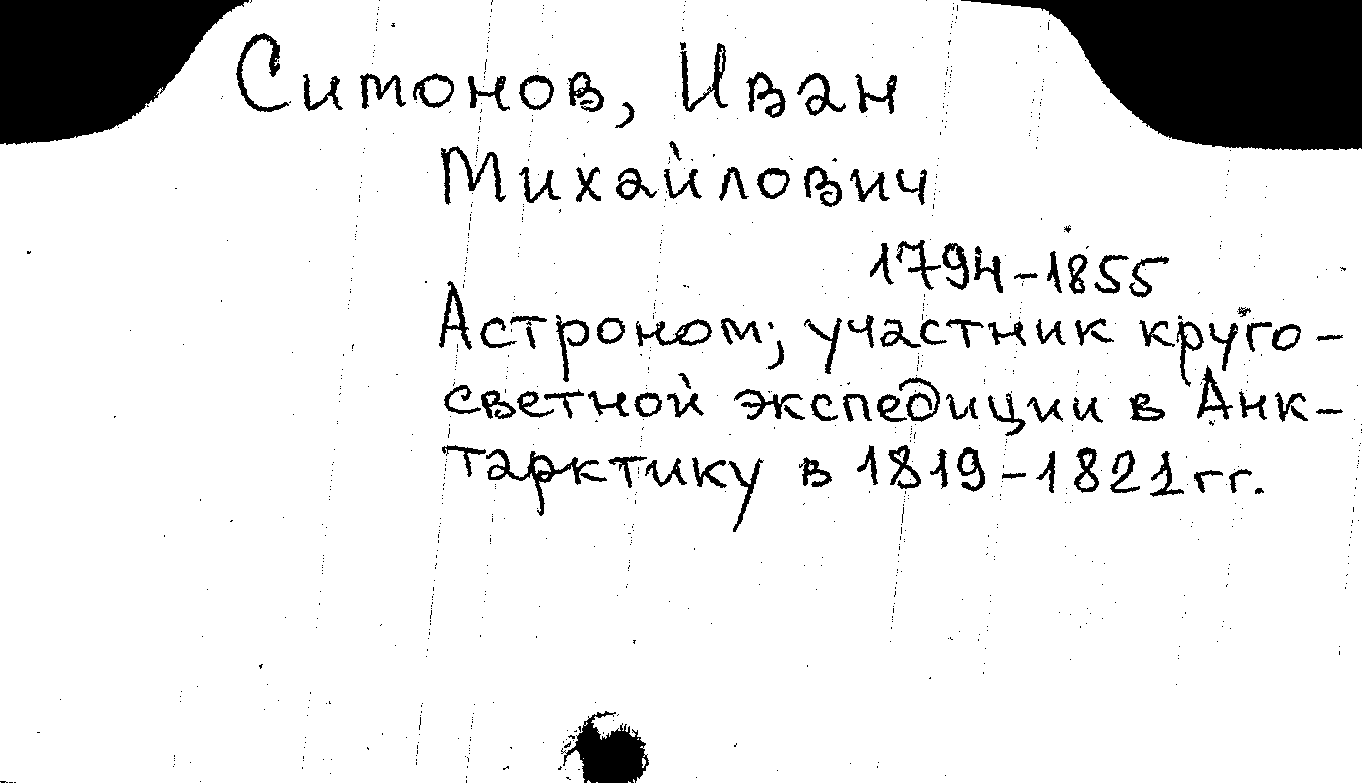 Симонов, Иван
Михайлович
1794-1855
Астроном; участник круго-
светной экспедиции в Анк-
тарктику в 1819-1821 гг.